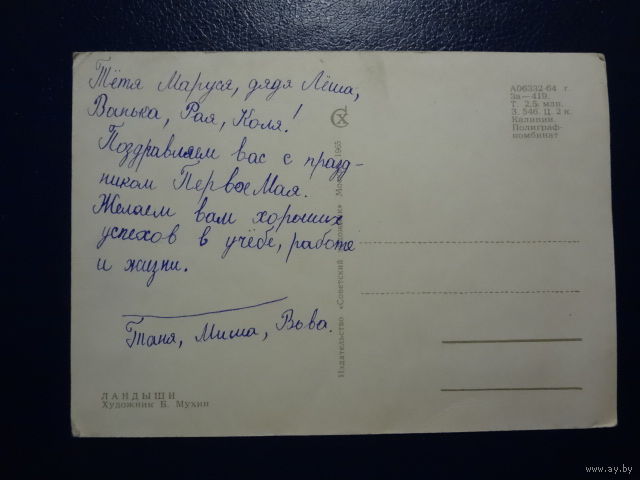 Тётя Маруся, дядя Лёша,
Ванька, Рая, Коля!
Поздравляем вас с празд-
ником Первое Мая.
Желаем вам хороших
успехов в учёбе, работе
и жизни.
Таня, Миша, Вова.
ЛАНДЫШИ
Художник Б. Мухин
Издательство «Советский художник» Москва 1965
А06332-64 г.
За—419.
Т. 2,5 млн.
З. 546. Ц. 2 к.
Калинин.
Полиграф-
комбинат
www.ay.by